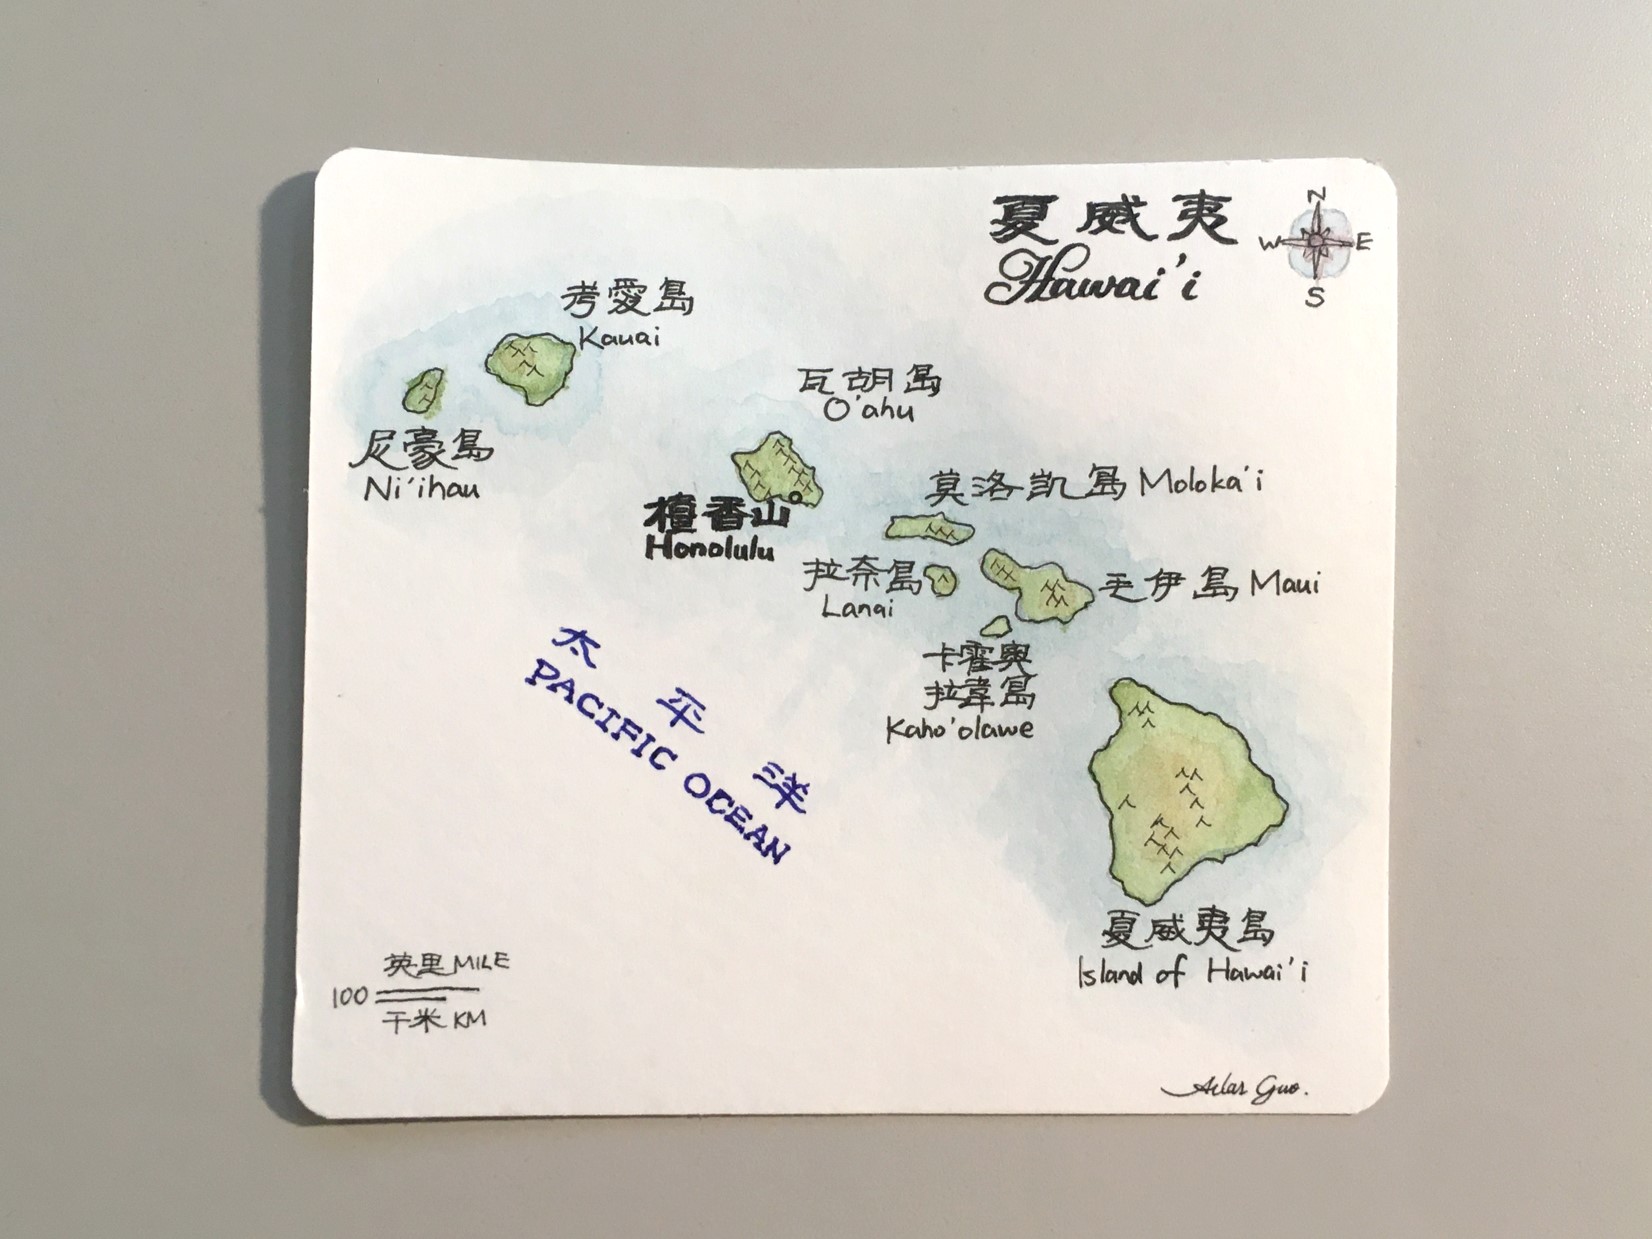 夏威夷
Hawai'i
N
W E
S
考愛島
Kauai
尼豪島
Ni'ihau
瓦胡島
O'ahu
檀香山
Honolulu
莫洛凱島 Moloka'i
拉奈島
Lanai
毛伊島 Maui
卡霍奧
拉韋島
Kaho'olawe
太平洋
PACIFIC OCEAN
夏威夷島
Island of Hawai'i
英里 MILE
100
千米 KM